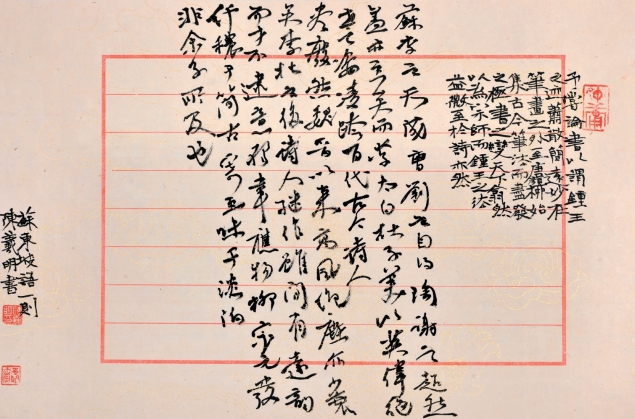 予嘗論書以謂鍾王
之迹蕭散簡遠妙在
筆畫之外至唐顏柳始
集古今筆法而盡發
之極書之變天下翕然
以為宗師而鍾王之法
益微至於詩亦然
蘇李之天成曹劉之自得陶謝之超然
盖亦至矣而李太白杜子美以英偉絕
世之姿凌跨百代古今詩人
盡廢然魏晉以來高風絕塵亦少衰
矣李杜之後詩人继作雖間有遠韵
而才不逮意獨韋應物柳宗元發
纤穠于簡古寄至味于淡泊
非余子所及也
蘇東坡語一則
陳羲明書